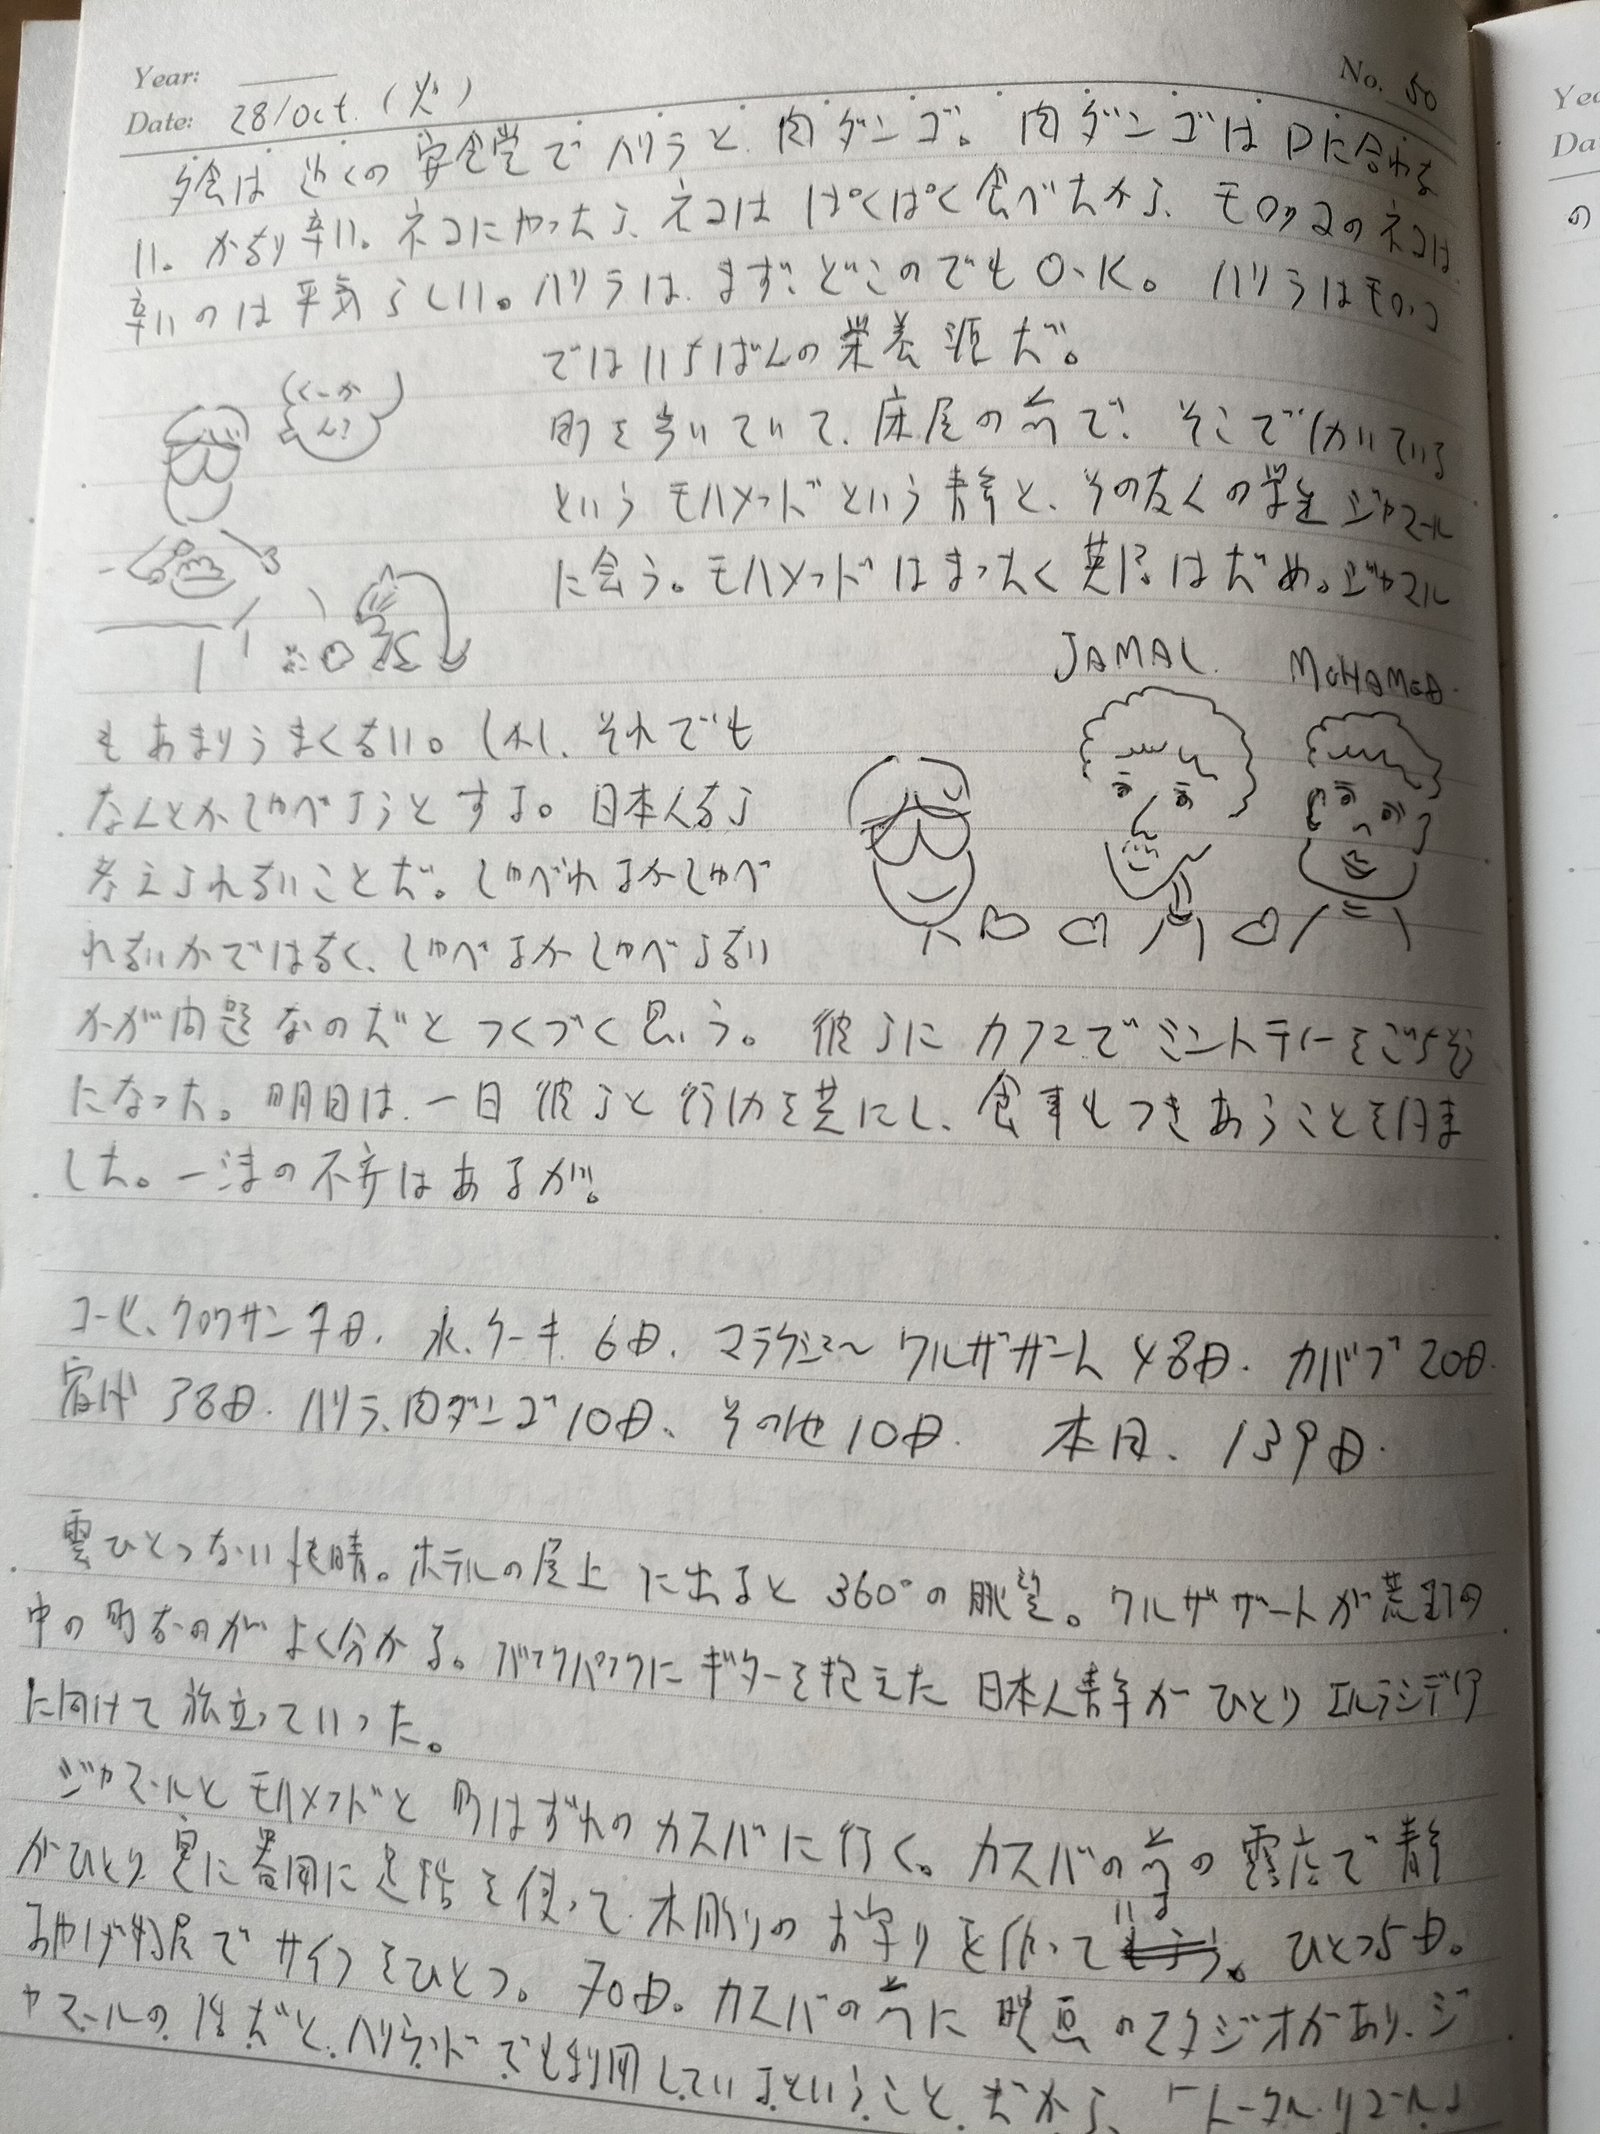 Year:
No. 50
Date: 28/Oct. (火)
夕食は近くの安食堂でハリラと肉ダンゴ。肉ダンゴは口に合わな
い。かなり辛い。ネコにやったら、ネコはぱくぱく食べたから、モロッコのネコは
辛いのは平気らしい。ハリラは、まず、どこのでもO.K。ハリラはモロッコ
ではいちばんの栄養源だ。
町を歩いていて、床屋の前で、そこで働いている
というモハメッドという青年と、その友人の学生ジャマール
に会う。モハメッドはまったく英語はだめ。ジャマル
JAMAL.
MOHAMED.
もあまりうまくない。しかし、それでも
なんとかしゃべろうとする。日本人なら
考えられないことだ。しゃべれるかしゃべ
れないかではなく、しゃべるかしゃべらない
かが問題なのだとつくづく思う。彼らにカフェでミントティーをごちそう
になった。明日は、一日彼らと行動を共にし、食事もつきあうことを決ま
した。一沫の不安はあるが。
コーヒ、クロワサン 7D. 水、ケーキ 6D. マラケシュ〜ワルザザート 48D. カバブ 20D.
宿代 38D. ハリラ、肉ダンゴ 10D、その他 10D. 本日、139D.
雲ひとつない快晴。ホテルの屋上に出ると360°の眺望。ワルザザートが荒野の
中の町なのがよく分かる。バックパックにギターを抱えた日本人青年がひとりエルラシディア
に向けて旅立っていった。
ジャマールとモハメッドと町はずれのカスバに行く。カスバの前の露店で青年
がひとり、実に器用に足指を使って木彫りのお守りを作っていま。ひとつ5D。
みやげ物屋でサイフをひとつ。70D。カスバの前に映画のスタジオがあり、ジ
ャマールの話だと、ハリウッドでも利用しているということ。だから、「トータル・リコール」